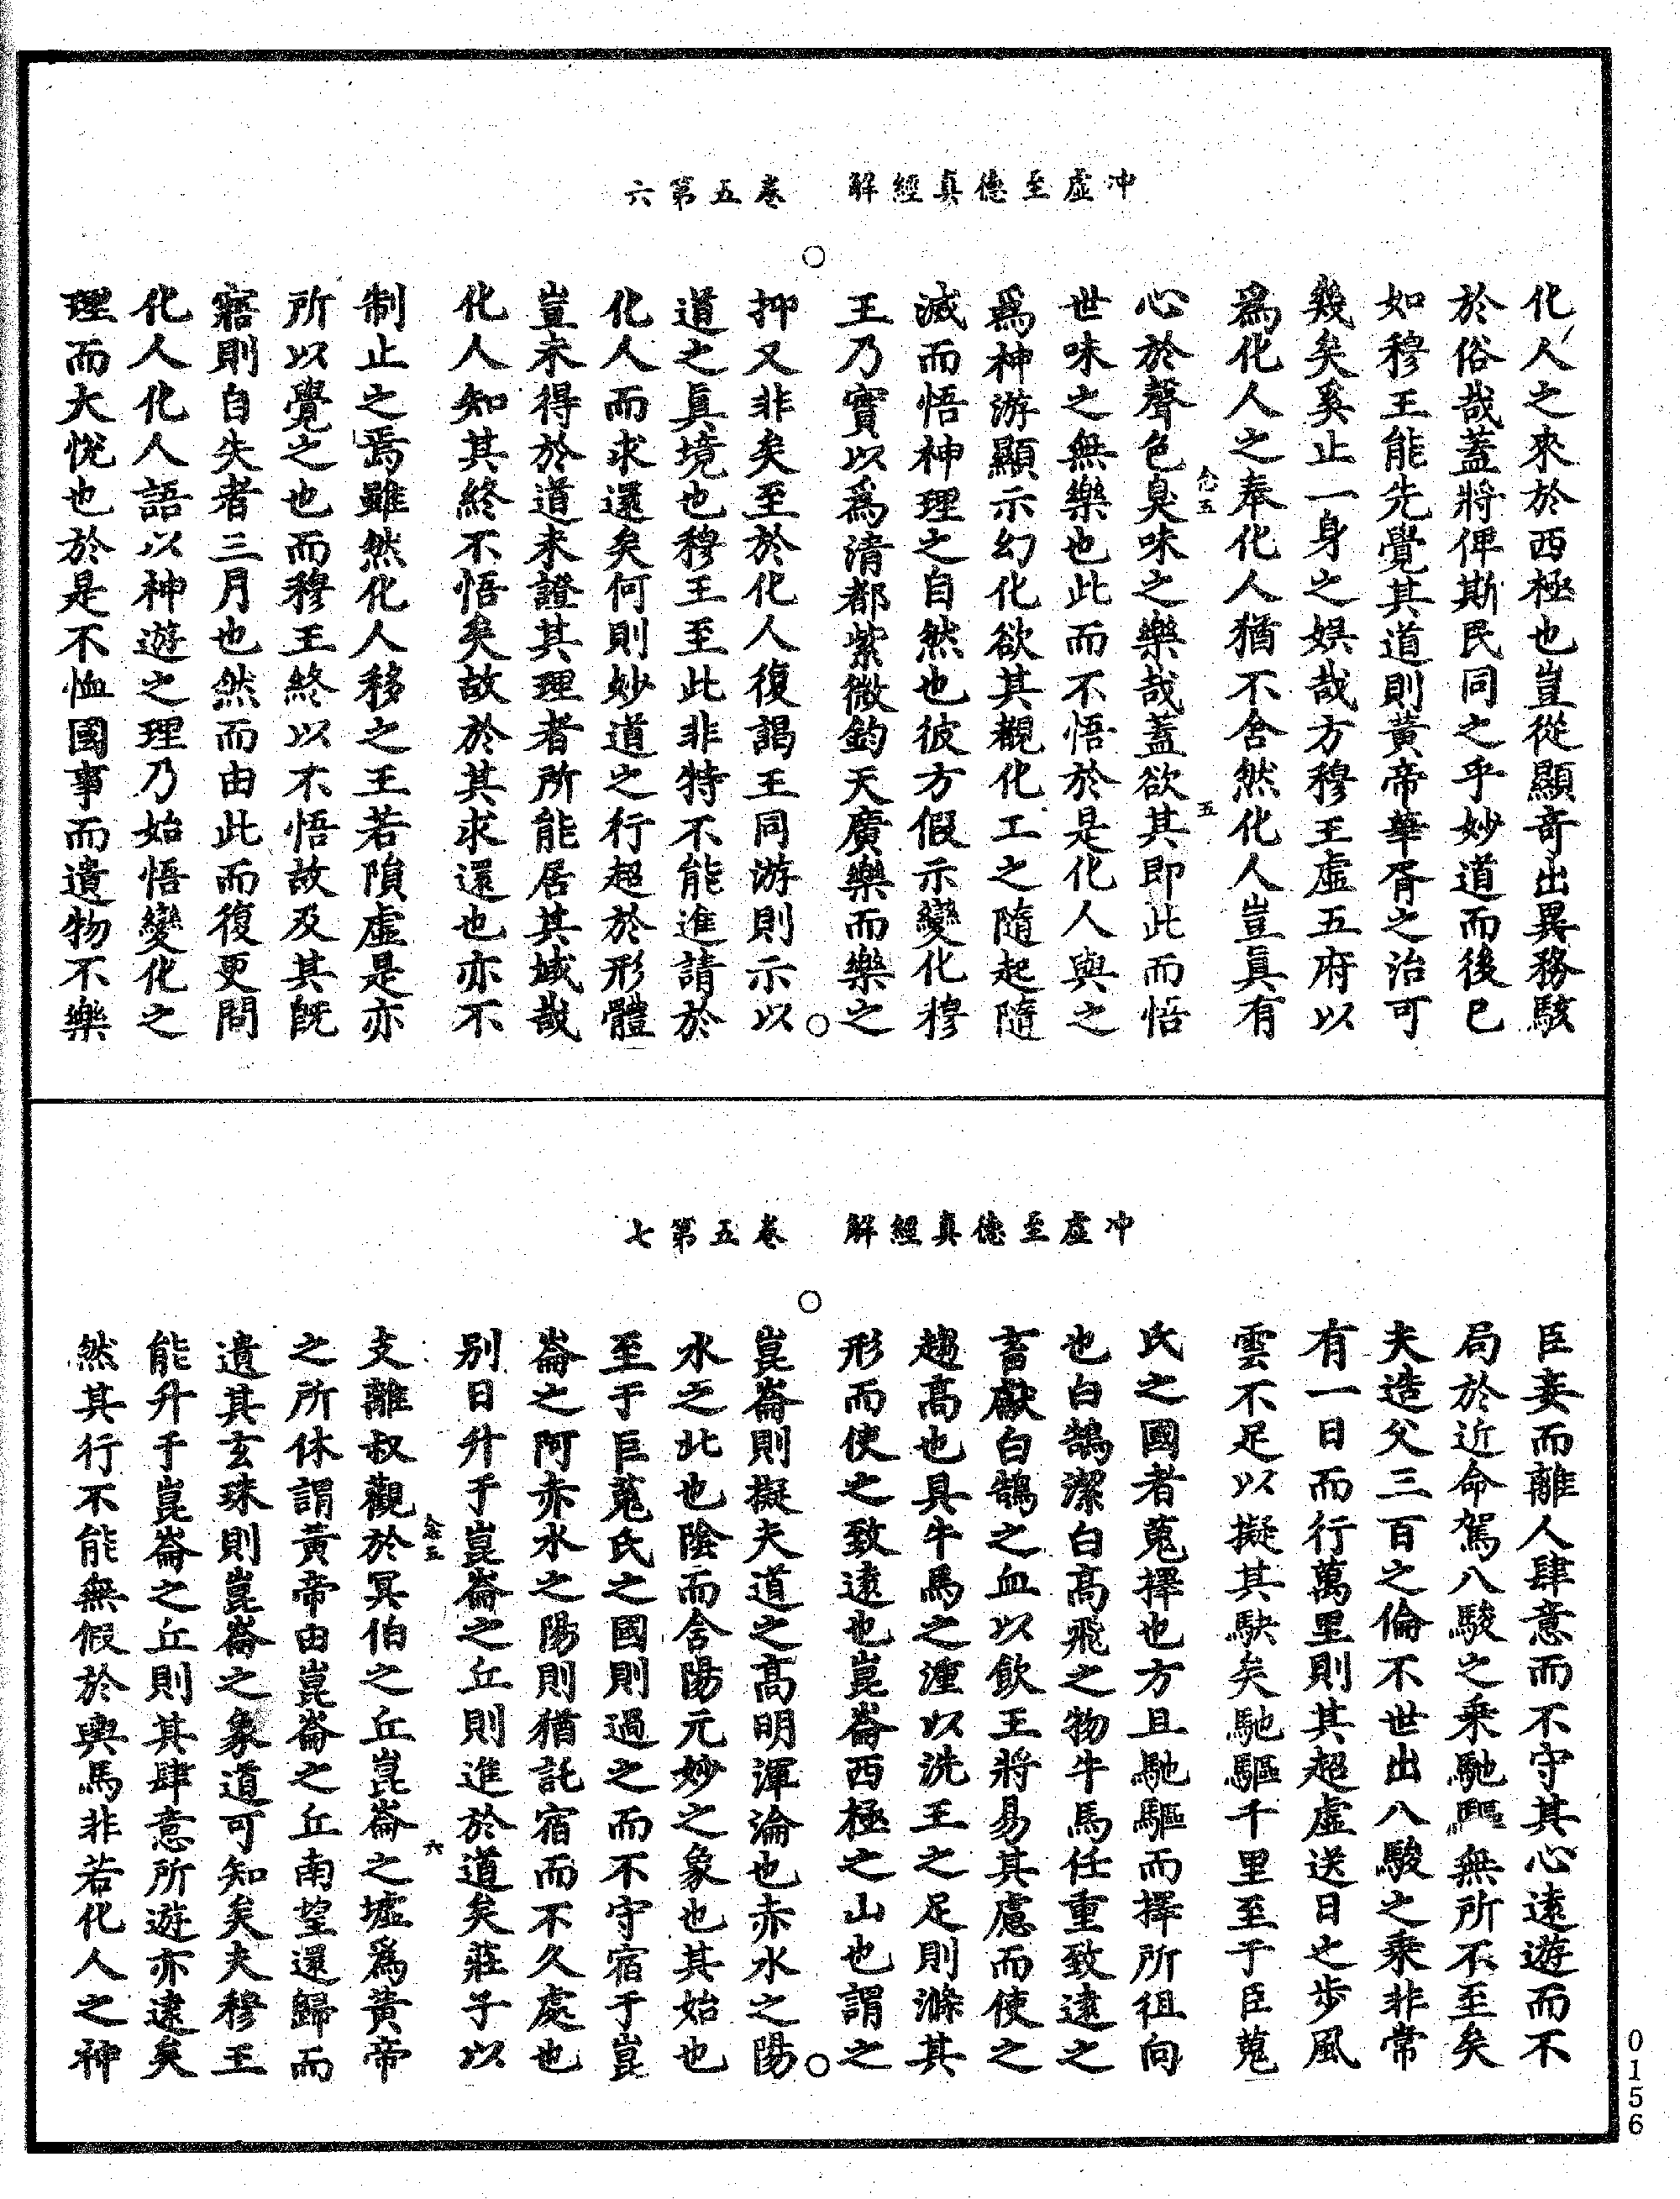 冲虛至德真經解　卷五第六
化人之來於西極也豈從顯奇出異務駭
於俗哉蓋將俾斯民同之乎妙道而後已
如穆王能先覺其道則黃帝華胥之治可
幾矣奚止一身之娯哉方穆王虛五府以
爲化人之奉化人猶不舍然化人豈眞有
五
五
心於聲色臭味之樂哉蓋欲其即此而悟
世味之無樂也此而不悟於是化人與之
爲神游顯示幻化欲其觀化工之隨起隨
滅而悟神理之自然也彼方假示變化穆
王乃實以爲清都紫微鈞天廣樂而樂之
抑又非矣至於化人復謁王同游則示以
道之眞境也穆王至此非特不能進請於
化人而求還矣何則妙道之行超於形體
豈未得於道未證其理者所能居其域哉
化人知其終不悟矣故於其求還也亦不
制止之焉雖然化人移之王若隕虛是亦
所以覺之也而穆王終以不悟故及其旣
寤則自失者三月也然而由此而復更問
化人化人語以神遊之理乃始悟變化之
理而大悅也於是不恤國事而遺物不樂
冲虛至德真經解　卷五第七
臣妾而離人肆意而不守其心遠遊而不
局於近命駕八駿之乘馳驅無所不至矣
夫造父三百之倫不世出八駿之乘非常
有一日而行萬里則其超虛送日之步風
雲不足以擬其駃矣馳驅千里至于臣蒐
氏之國者蒐擇也方且馳驅而擇所徂向
也白鵠潔白高飛之物牛馬任重致遠之
畜獻白鵠之血以飲王將易其慮而使之
趨高也具牛馬之湩以洗王之足則滌其
形而使之致遠也崑崙西極之山也謂之
崑崙則擬夫道之高明渾淪也赤水之陽
水之北也陰而含陽元妙之象也其始也
至于巨蒐氏之國則過之而不守宿于崑
崙之阿赤水之陽則猶託宿而不久處也
別日升于崑崙之丘則進於道矣莊子以
五
六
支離叔觀於冥伯之丘崑崙之墟爲黃帝
之所休謂黃帝由崑崙之丘南望還歸而
遺其玄珠則崑崙之象道可知矣夫穆王
能升于崑崙之丘則其肆意所遊亦逮矣
然其行不能無假於輿馬非若化人之神
0156